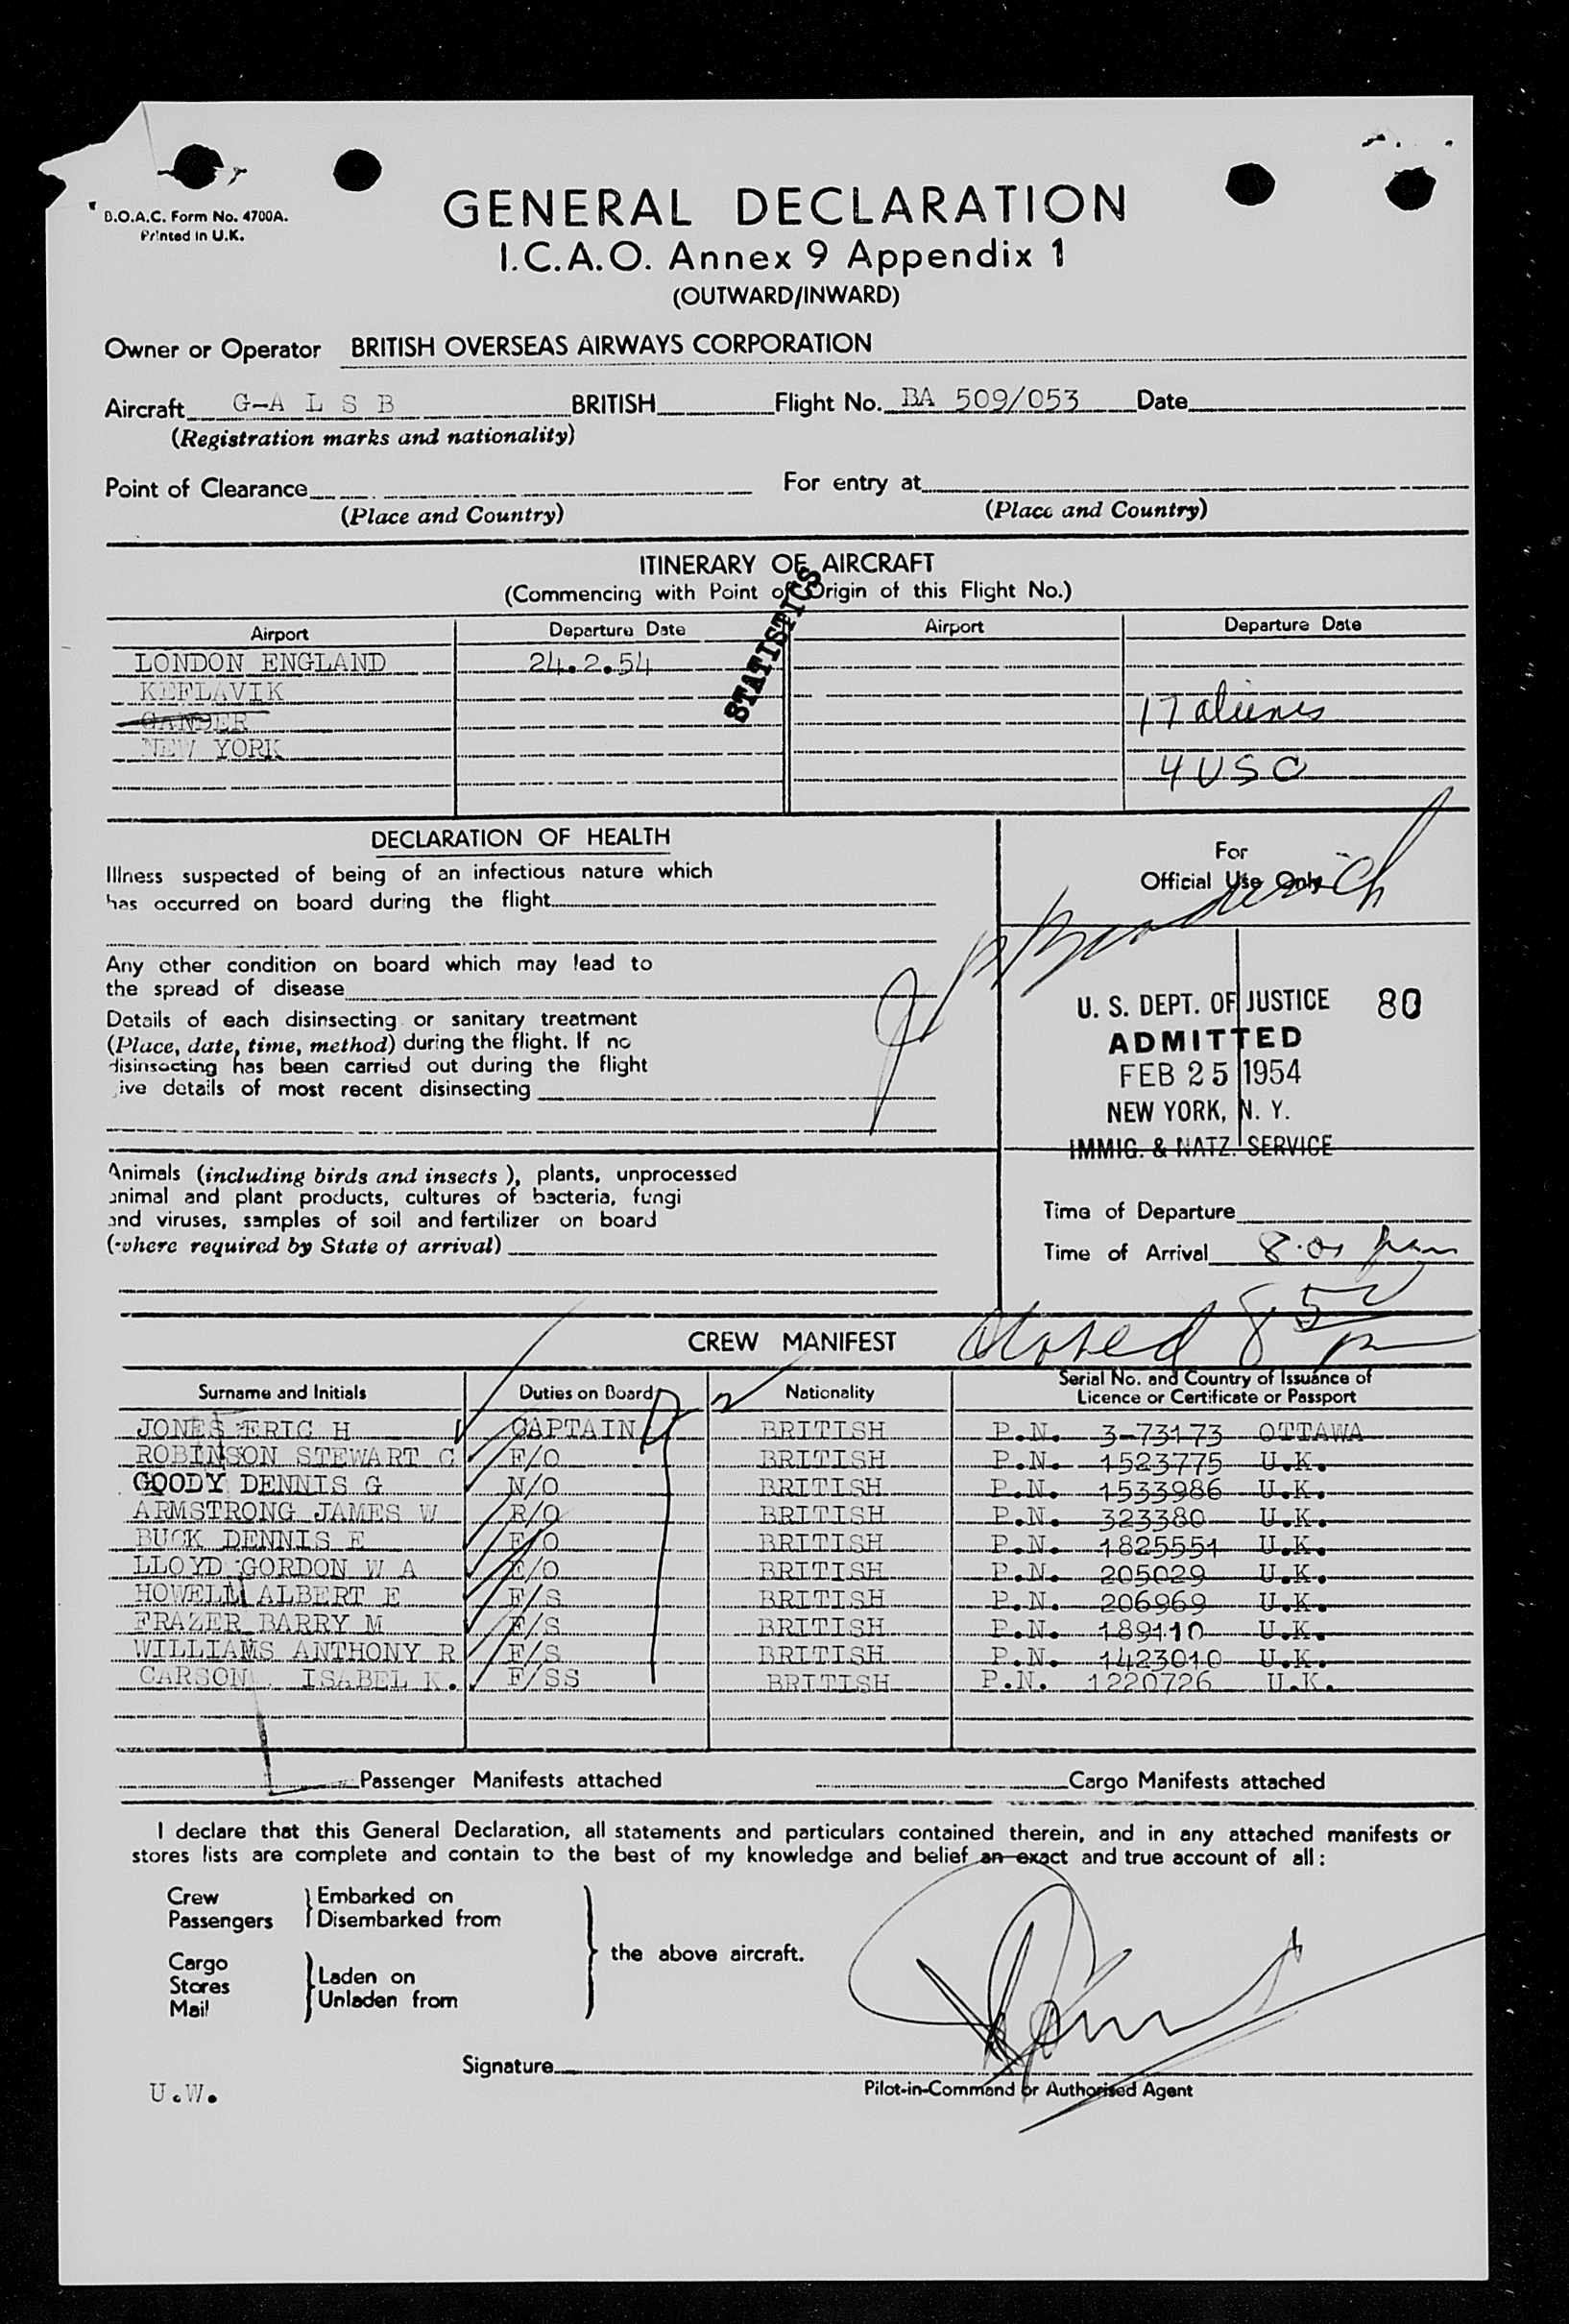 B.O.A.C. Form No. 4700A.
Printed in U.K.
GENERAL DECLARATION
I.C.A.O. Annex 9 Appendix 1
(OUTWARD/INWARD)
Owner or Operator BRITISH OVERSEAS AIRWAYS CORPORATION
Aircraft G-A L S B BRITISH Flight No. BA 509/053 Date
(Registration marks and nationality)
Point of Clearance For entry at
(Place and Country) (Place and Country)
ITINERARY OF AIRCRAFT
(Commencing with Point of Origin of this Flight No.)
STATISTICS
Airport Departure Date Airport Departure Date
LONDON ENGLAND 24.2.54
KEFLAVIK
GANDER 17 aliens
NEW YORK
4 USC
DECLARATION OF HEALTH
For
Official Use Only
Illness suspected of being of an infectious nature which
has occurred on board during the flight
Any other condition on board which may lead to
the spread of disease
Details of each disinsecting or sanitary treatment
(Place, date, time, method) during the flight. If no
disinsecting has been carried out during the flight
give details of most recent disinsecting
U. S. DEPT. OF JUSTICE 80
ADMITTED
FEB 25 1954
NEW YORK, N. Y.
IMMIG. & NATZ. SERVICE
Animals (including birds and insects), plants, unprocessed
animal and plant products, cultures of bacteria, fungi
and viruses, samples of soil and fertilizer on board
(where required by State of arrival)
Time of Departure
Time of Arrival 8.01 pm
CREW MANIFEST closed 8 50 pm
Surname and Initials Duties on Board Nationality Serial No. and Country of Issuance of
Licence or Certificate or Passport
JONES ERIC H CAPTAIN BRITISH P.N. 3-73173 OTTAWA
ROBINSON STEWART C F/O BRITISH P.N. 1523775 U.K.
GOODY DENNIS G N/O BRITISH P.N. 1533986 U.K.
ARMSTRONG JAMES W R/O BRITISH P.N. 323380 U.K.
BUCK DENNIS E E/O BRITISH P.N. 1825551 U.K.
LLOYD GORDON W A E/O BRITISH P.N. 205029 U.K.
HOWELL ALBERT E F/S BRITISH P.N. 206969 U.K.
FRAZER BARRY M F/S BRITISH P.N. 189110 U.K.
WILLIAMS ANTHONY R F/S BRITISH P.N. 1423010 U.K.
CARSON ISABEL K. F/SS BRITISH P.N. 1220726 U.K.
Passenger Manifests attached Cargo Manifests attached
I declare that this General Declaration, all statements and particulars contained therein, and in any attached manifests or
stores lists are complete and contain to the best of my knowledge and belief an exact and true account of all:
Crew Embarked on
Passengers Disembarked from
the above aircraft.
Cargo
Stores Laden on
Mail Unladen from
Signature
Pilot-in-Command or Authorised Agent
U.W.